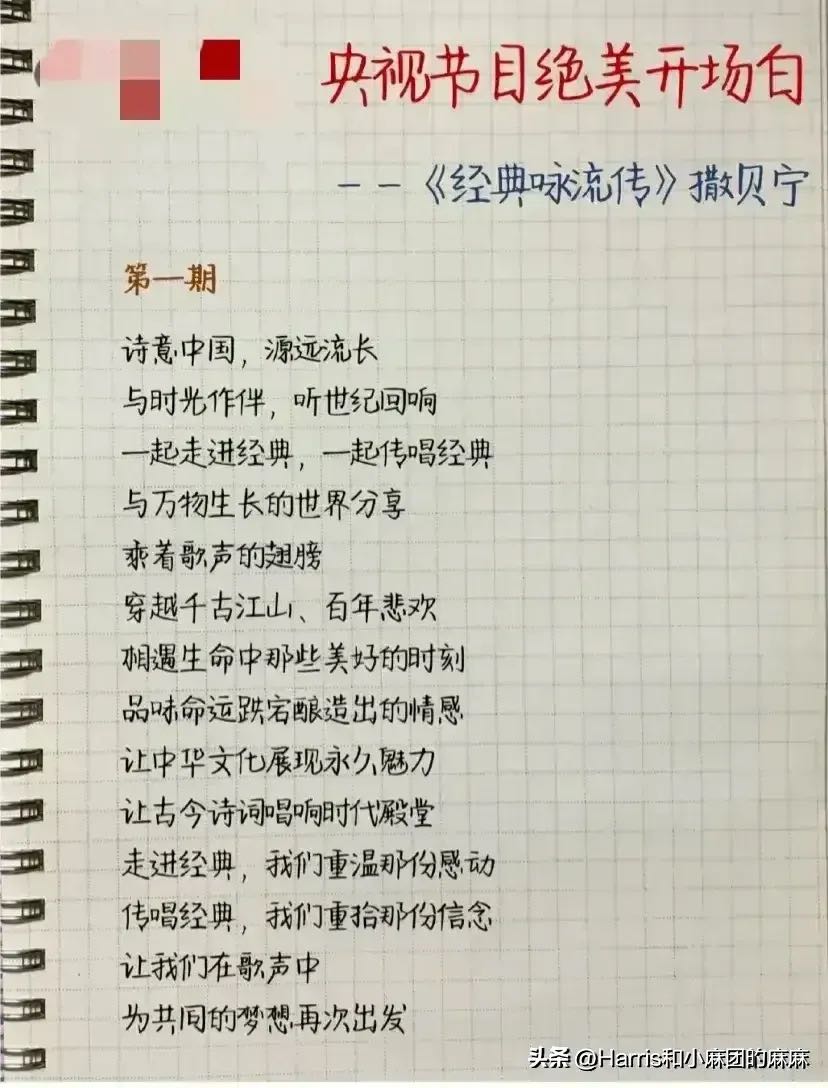 央视节目绝美开场白
——《经典咏流传》撒贝宁
第一期
诗意中国，源远流长
与时光作伴，听世纪回响
一起走进经典，一起传唱经典
与万物生长的世界分享
乘着歌声的翅膀
穿越千古江山、百年悲欢
相遇生命中那些美好的时刻
品味命运跌宕酿造出的情感
让中华文化展现永久魅力
让古今诗词唱响时代殿堂
走进经典，我们重温那份感动
传唱经典，我们重拾那份信念
让我们在歌声中
为共同的梦想再次出发
头条 @Harris和小麻团的麻麻